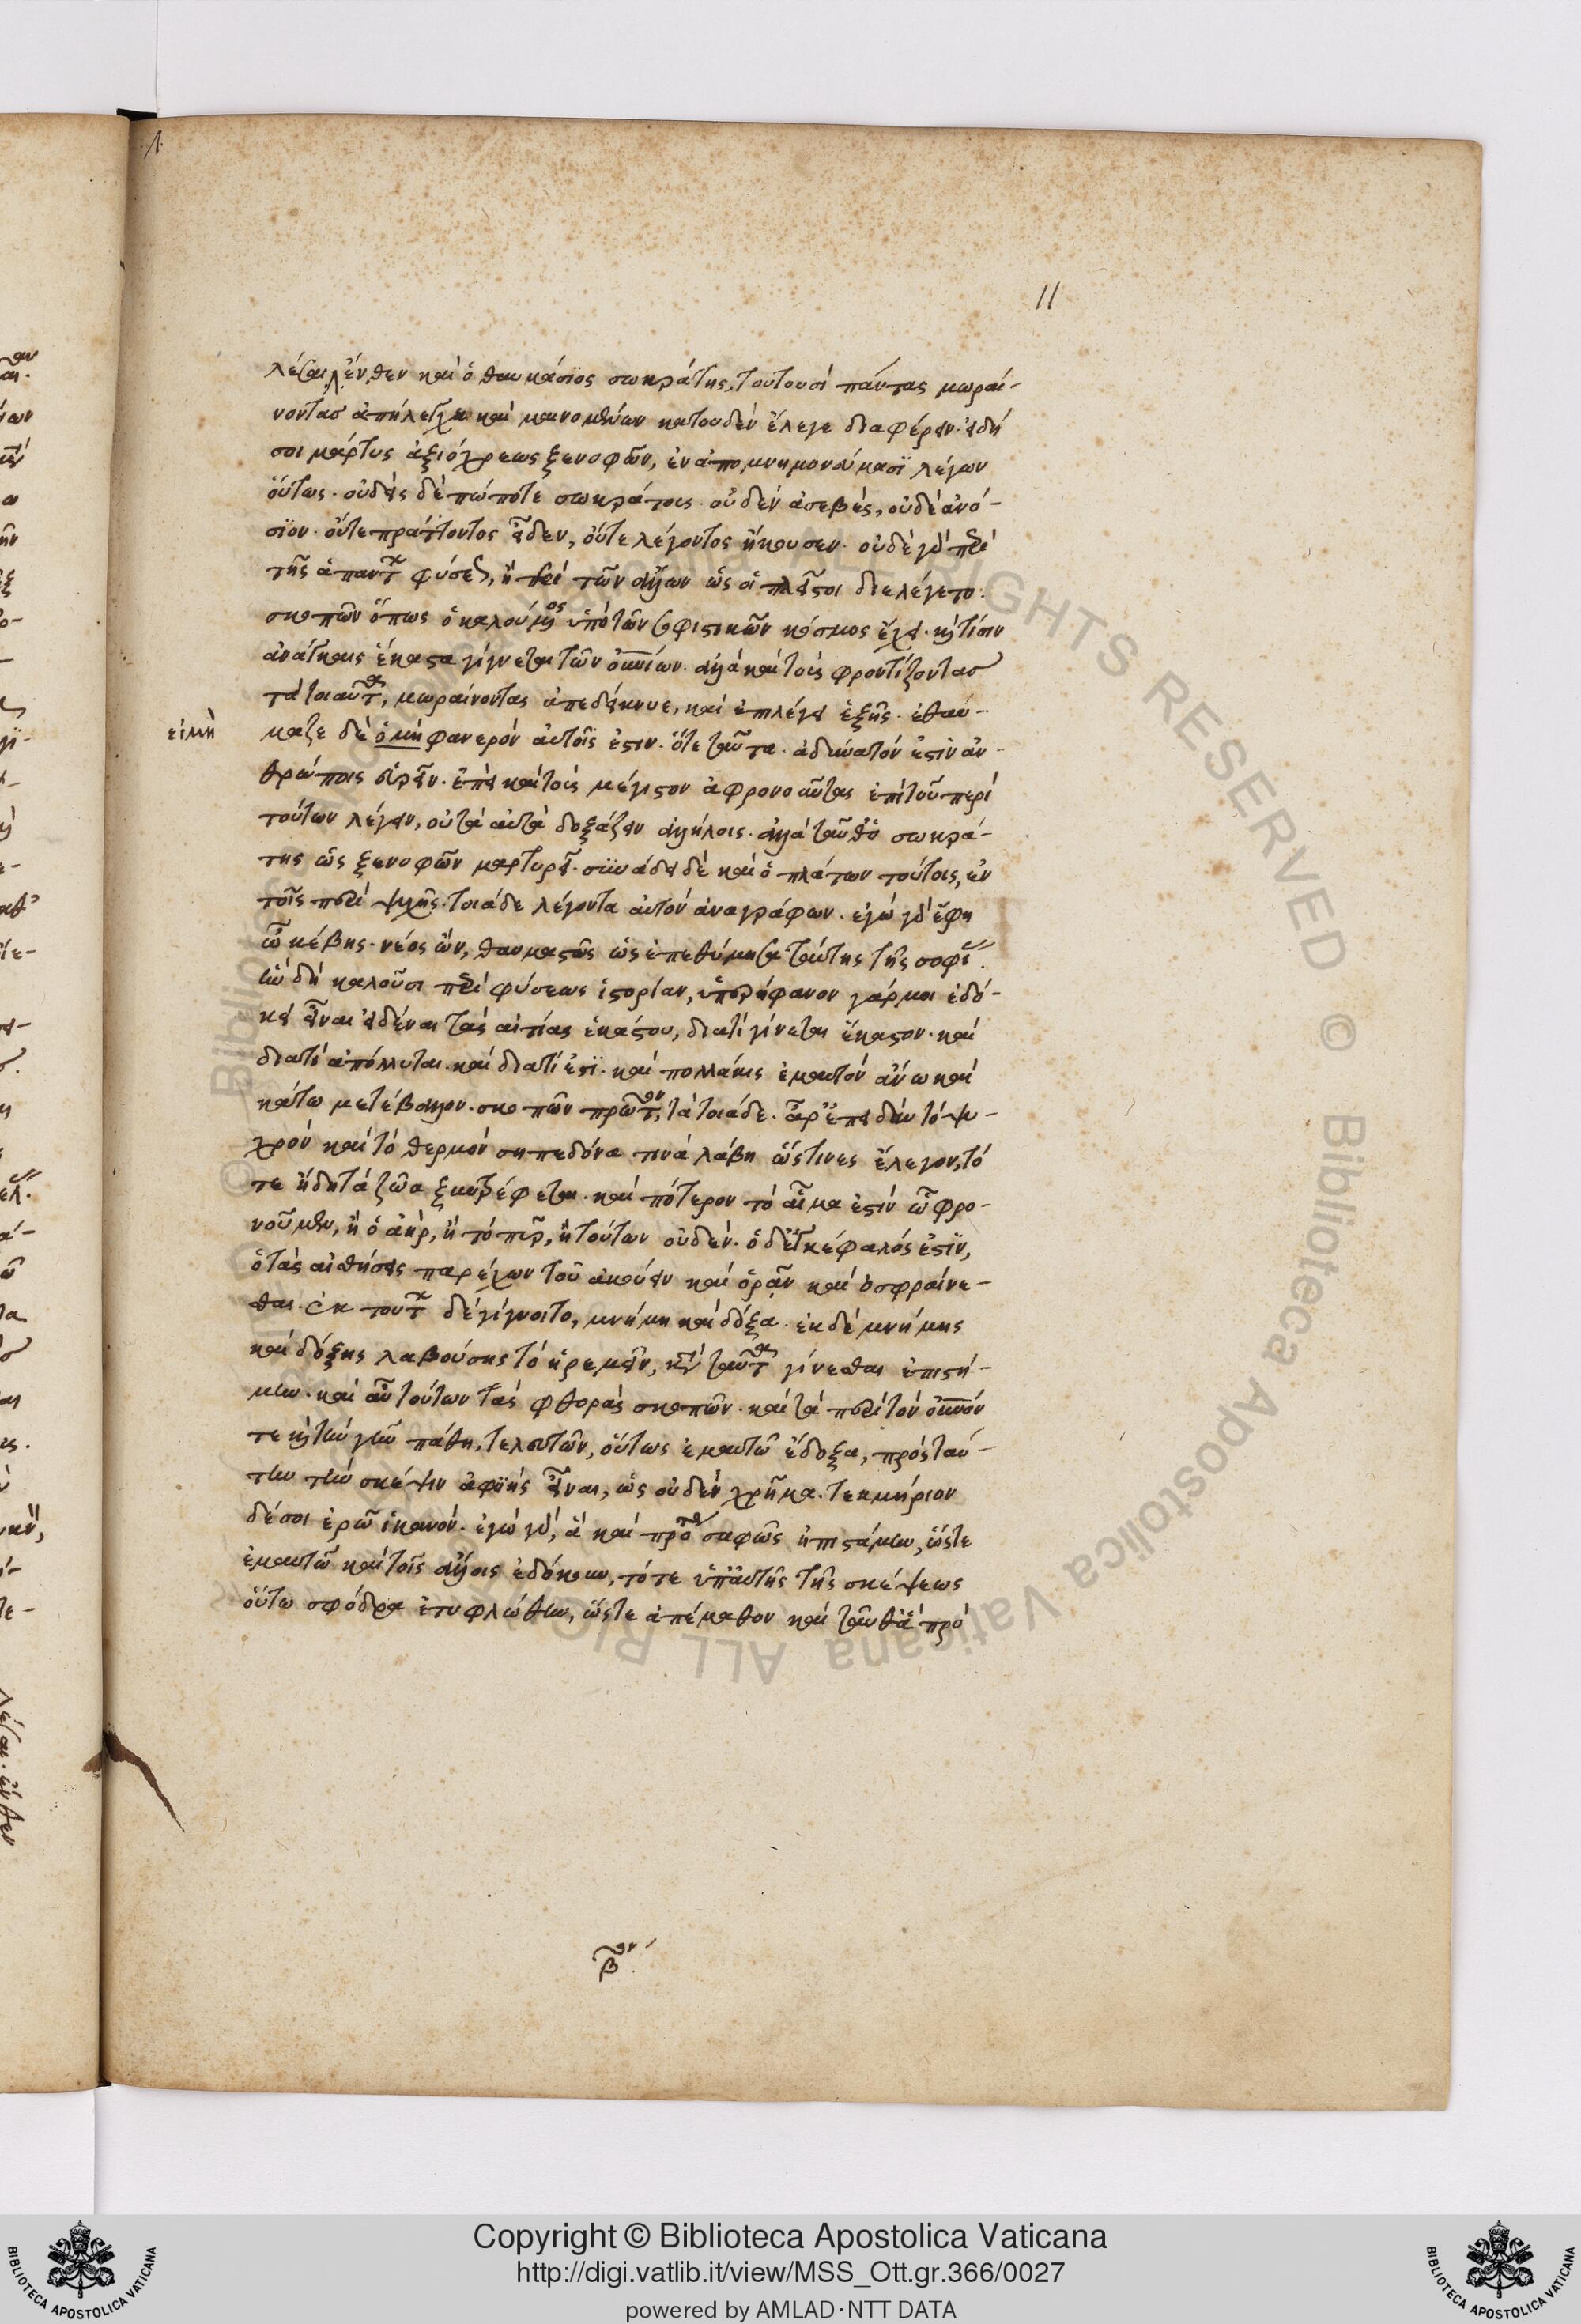 11
λέσαι, ἔνθεν καὶ ὁ θαυμάσιος σωκράτης, τουτουσὶ πάντας μωραί-
νοντας ἀπήλεγχε καὶ μαινομένων κατουδὲν ἔλεγε διαφέρειν. εἰδή
σοι μάρτυς ἀξιόχρεως ξενοφῶν, ἐν ἀπομνημονεύμασι λέγων
οὕτως. οὐδεὶς δὲ πώποτε σωκράτους οὐδὲν ἀσεβὲς, οὐδὲ ἀνό-
σιον. οὔτε πράττοντος εἶδεν, οὔτε λέγοντος ἤκουσεν. οὐδὲ γὰρ περὶ
τῆς ἁπάντων φύσεως, ἢ περὶ τῶν ἄλλων ὡς οἱ πλεῖστοι διελέγετο.
σκοπῶν ὅπως ὁ καλούμενος ὑπὸ τῶν σοφιστικῶν κόσμος ἔχει. καὶ τίσιν
ἀνάγκαις ἕκαστα γίγνεται τῶν οὐρανίων. ἀλλὰ καὶ τοὺς φροντίζοντας
τὰ τοιαῦτα, μωραίνοντας ἀπεδείκνυε, καὶ ἐπιλέγει ἑξῆς. ἐθαύ-
εἰ μὴ
μαζε δὲ ὁ μὴ φανερὸν αὐτοῖς ἐστιν. ὅτε ταῦτα ἀδύνατόν ἐστιν ἀν-
θρώποις εὑρεῖν. ἐπεὶ καὶ τοὺς μέγιστον ἀφρονοῦντας ἐπὶ τοῦ περὶ
τούτων λέγειν, οὐ τὰ αὐτὰ δοξάζειν ἀλλήλοις. ἀλλὰ ταῦθ' ὁ σωκρά-
της ὡς ξενοφῶν μαρτυρεῖ. συνάδει δὲ καὶ ὁ πλάτων τούτοις, ἐν
τοῖς περὶ ψυχῆς. τοιάδε λέγοντα αὐτὸν ἀναγράφων. ἐγὼ γὰρ ἔφη
ὦ κέβης. νέος ὢν, θαυμαστῶς ὡς ἐπεθύμησα ταύτης τῆς σοφίας.
ἣν δὴ καλοῦσι περὶ φύσεως ἱστορίαν, ὑπερήφανον γάρ μοι ἐδό-
κει εἶναι εἰδέναι τὰς αἰτίας ἑκάστου, διατί γίνεται ἕκαστον. καὶ
διατί ἀπόλλυται. καὶ διατί ἐστι. καὶ πολλάκις ἐμαυτὸν ἄνω καὶ
κάτω μετέβαλλον. σκοπῶν πρῶτον, τὰ τοιάδε. ἆρ' ἐπειδὰν τὸ ψυ-
χρὸν καὶ τὸ θερμὸν σηπεδόνα τινὰ λάβη ὥς τινες ἔλεγον, τό
τε ἤδη τὰ ζῶα ξυντρέφεται. καὶ πότερον τὸ αἷμα ἐστὶν ὧ φρο-
νοῦμεν, ἢ ὁ ἀὴρ, ἢ τὸ πῦρ, ἢ τούτων οὐδὲν. ὁ δ' ἐγκέφαλός ἐστιν,
ὁ τὰς αἰσθήσεις παρέχων τοῦ ἀκούειν καὶ ὁρᾶν καὶ ὀσφραίνε-
σθαι. ἐκ τούτων δὲ γίγνοιτο, μνήμη καὶ δόξα. ἐκ δὲ μνήμης
καὶ δόξης λαβούσης τὸ ἠρεμεῖν, κατὰ ταῦτα γίνεσθαι ἐπιστή-
μην. καὶ αὖ τούτων τὰς φθορὰς σκοπῶν. καὶ τὰ περὶ τὸν οὐρανόν
τε καὶ τὴν γῆν πάθη, τελευτῶν, οὕτως ἐμαυτῶ ἔδοξα, πρὸς ταύ-
την τὴν σκέψιν ἀφυὴς εἶναι, ὡς οὐδὲν χρῆμα. τεκμήριον
δέ σοι ἐρῶ ἱκανόν. ἐγὼ γὰρ, ἃ καὶ πρότερον σαφῶς ἠπιστάμην, ὥς τε
ἐμαυτῶ καὶ τοῖς ἄλλοις ἐδόκουν, τότε ὑπ' αὐτῆς τῆς σκέψεως
οὕτω σφόδρα ἐτυφλώθην, ὥςτε ἀπέμαθον καὶ ταῦθ' ἃ πρὸ
β<sup>ον</sup>
Copyright © Biblioteca Apostolica Vaticana
http://digi.vatlib.it/view/MSS_Ott.gr.366/0027
powered by AMLAD·NTT DATA